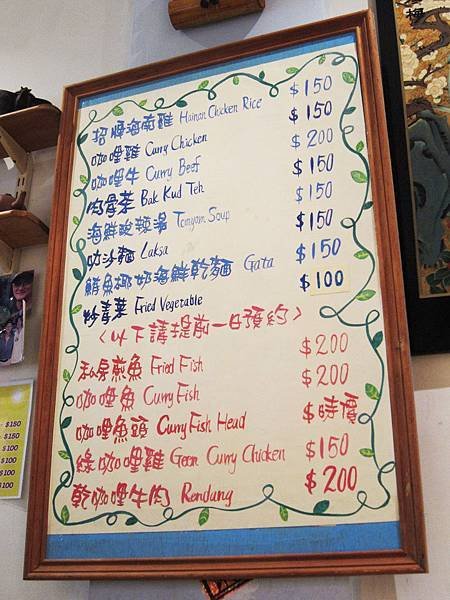 招牌海南雞 Hainan Chicken Rice $150
咖哩雞 Curry Chicken $150
咖哩牛 Curry Beef $200
肉骨茶 Bak Kud Teh $150
海鮮酸辣湯 Tomyam Soup $150
叻沙麵 Laksa $150
鯖魚椰奶海鮮乾麵 Gata $150
炒青菜 Fried Vegetable $100
<以下請提前一日預約>
私房煎魚 Fried Fish $200
咖哩魚 Curry Fish $200
咖哩魚頭 Curry Fish Head $時價
綠咖哩雞 Geen Curry Chicken $150
乾咖哩牛肉 Rendang $200
$150
$150
$100
$100
$100